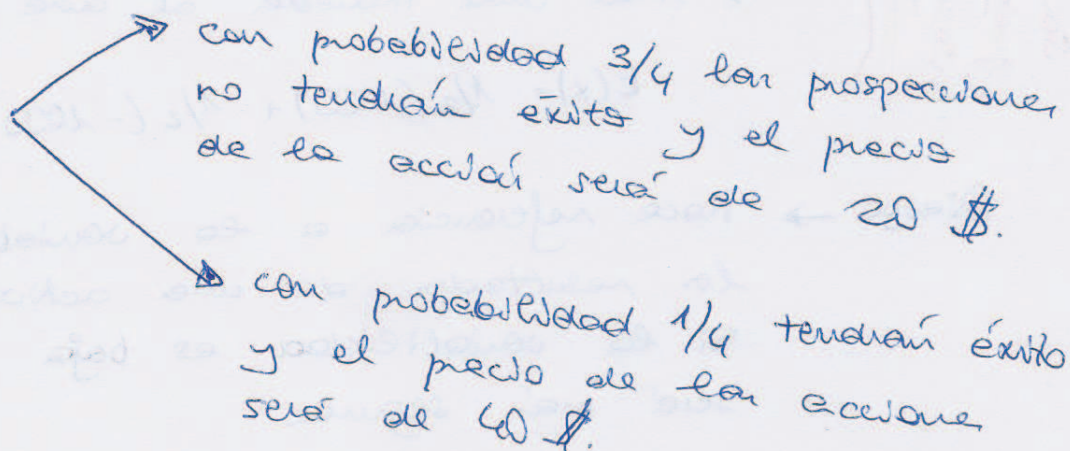 con probabilidad 3/4 las prospecciones
no tendrán éxito y el precio
de la acción será de 20 $.
con probabilidad 1/4 tendrán éxito
y el precio de las acciones
será de 40 $.